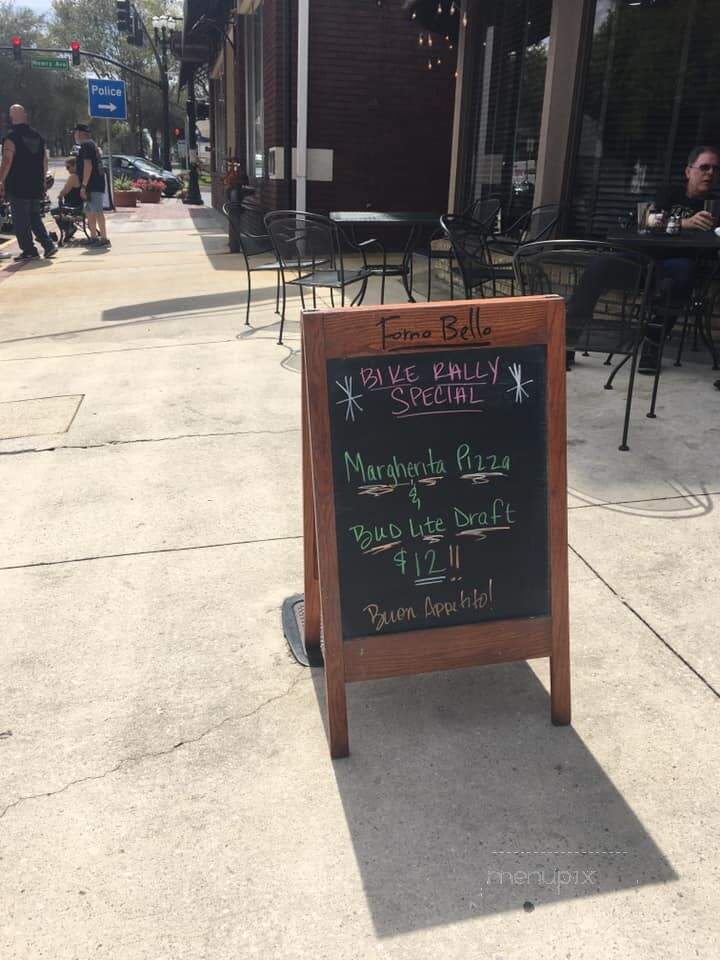 Howry Ave
Police
Forno Bello
BIKE RALLY
SPECIAL
Margherita Pizza
&
BUD Lite Draft
$12!!
Buon Appetito!
menupix